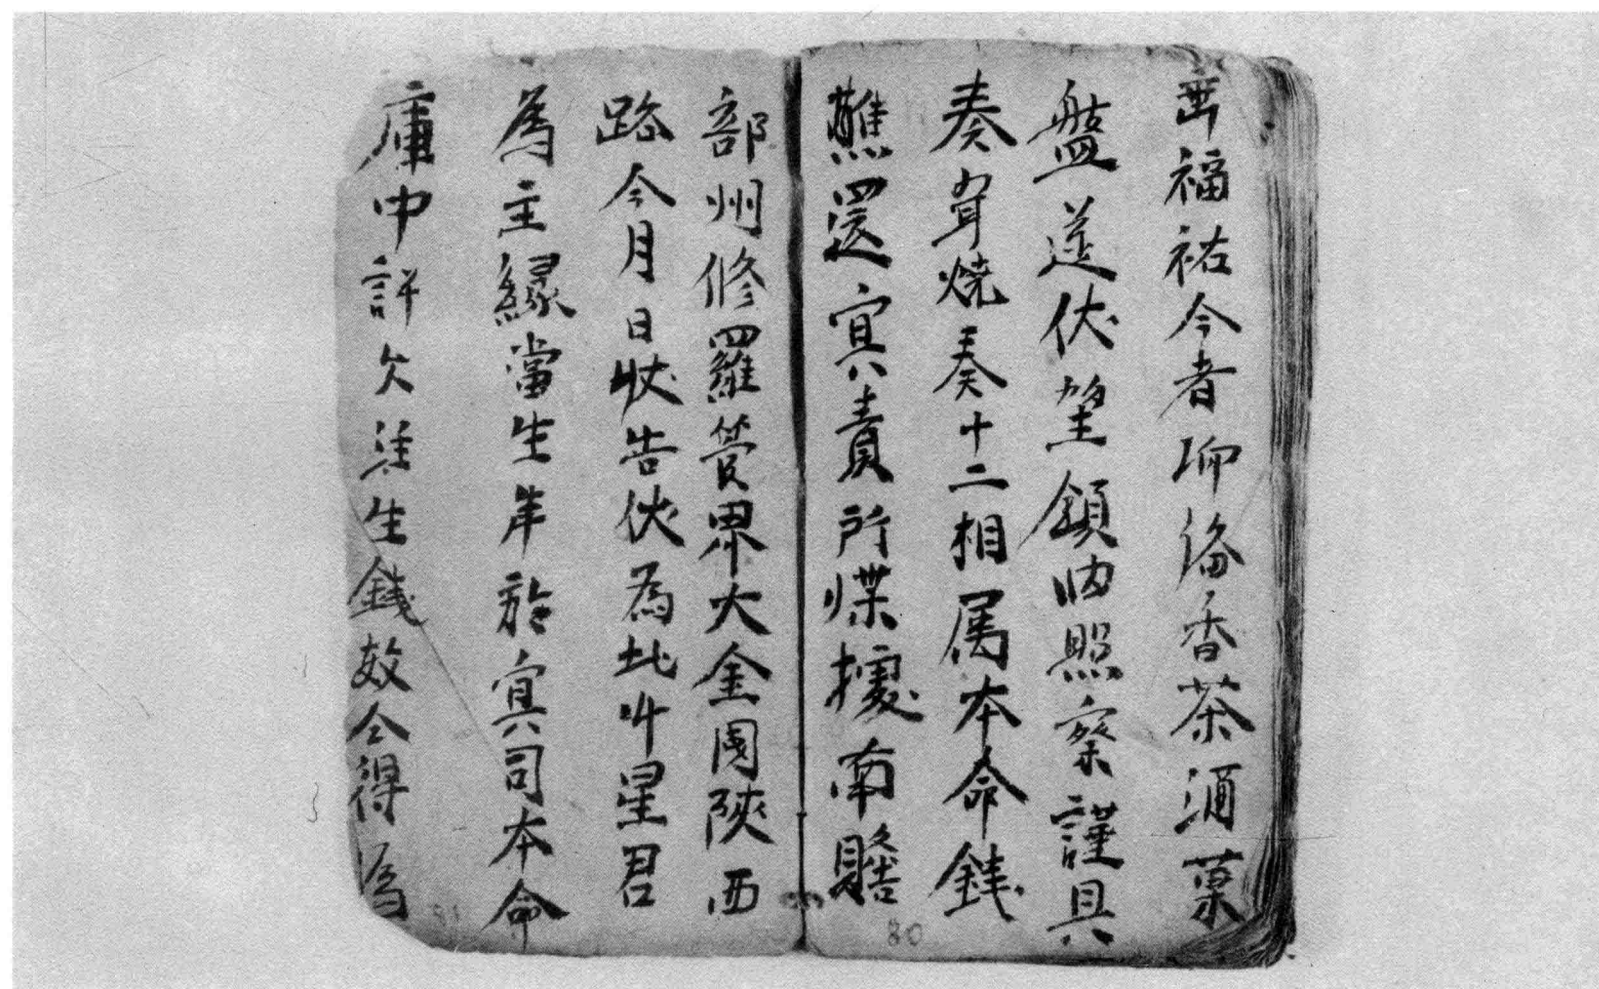 垂福祐今者聊俻香茶酒菓
盤筵伏望領納照察謹具
奏聞燒奏十二相属本命錢
醮還冥責所牒擾南贍
部州修羅管界大金國陝西
路今月日狀告伏為北斗星君
為主緣當生年於冥司本命
庫中許欠注生錢数今得為
80
51